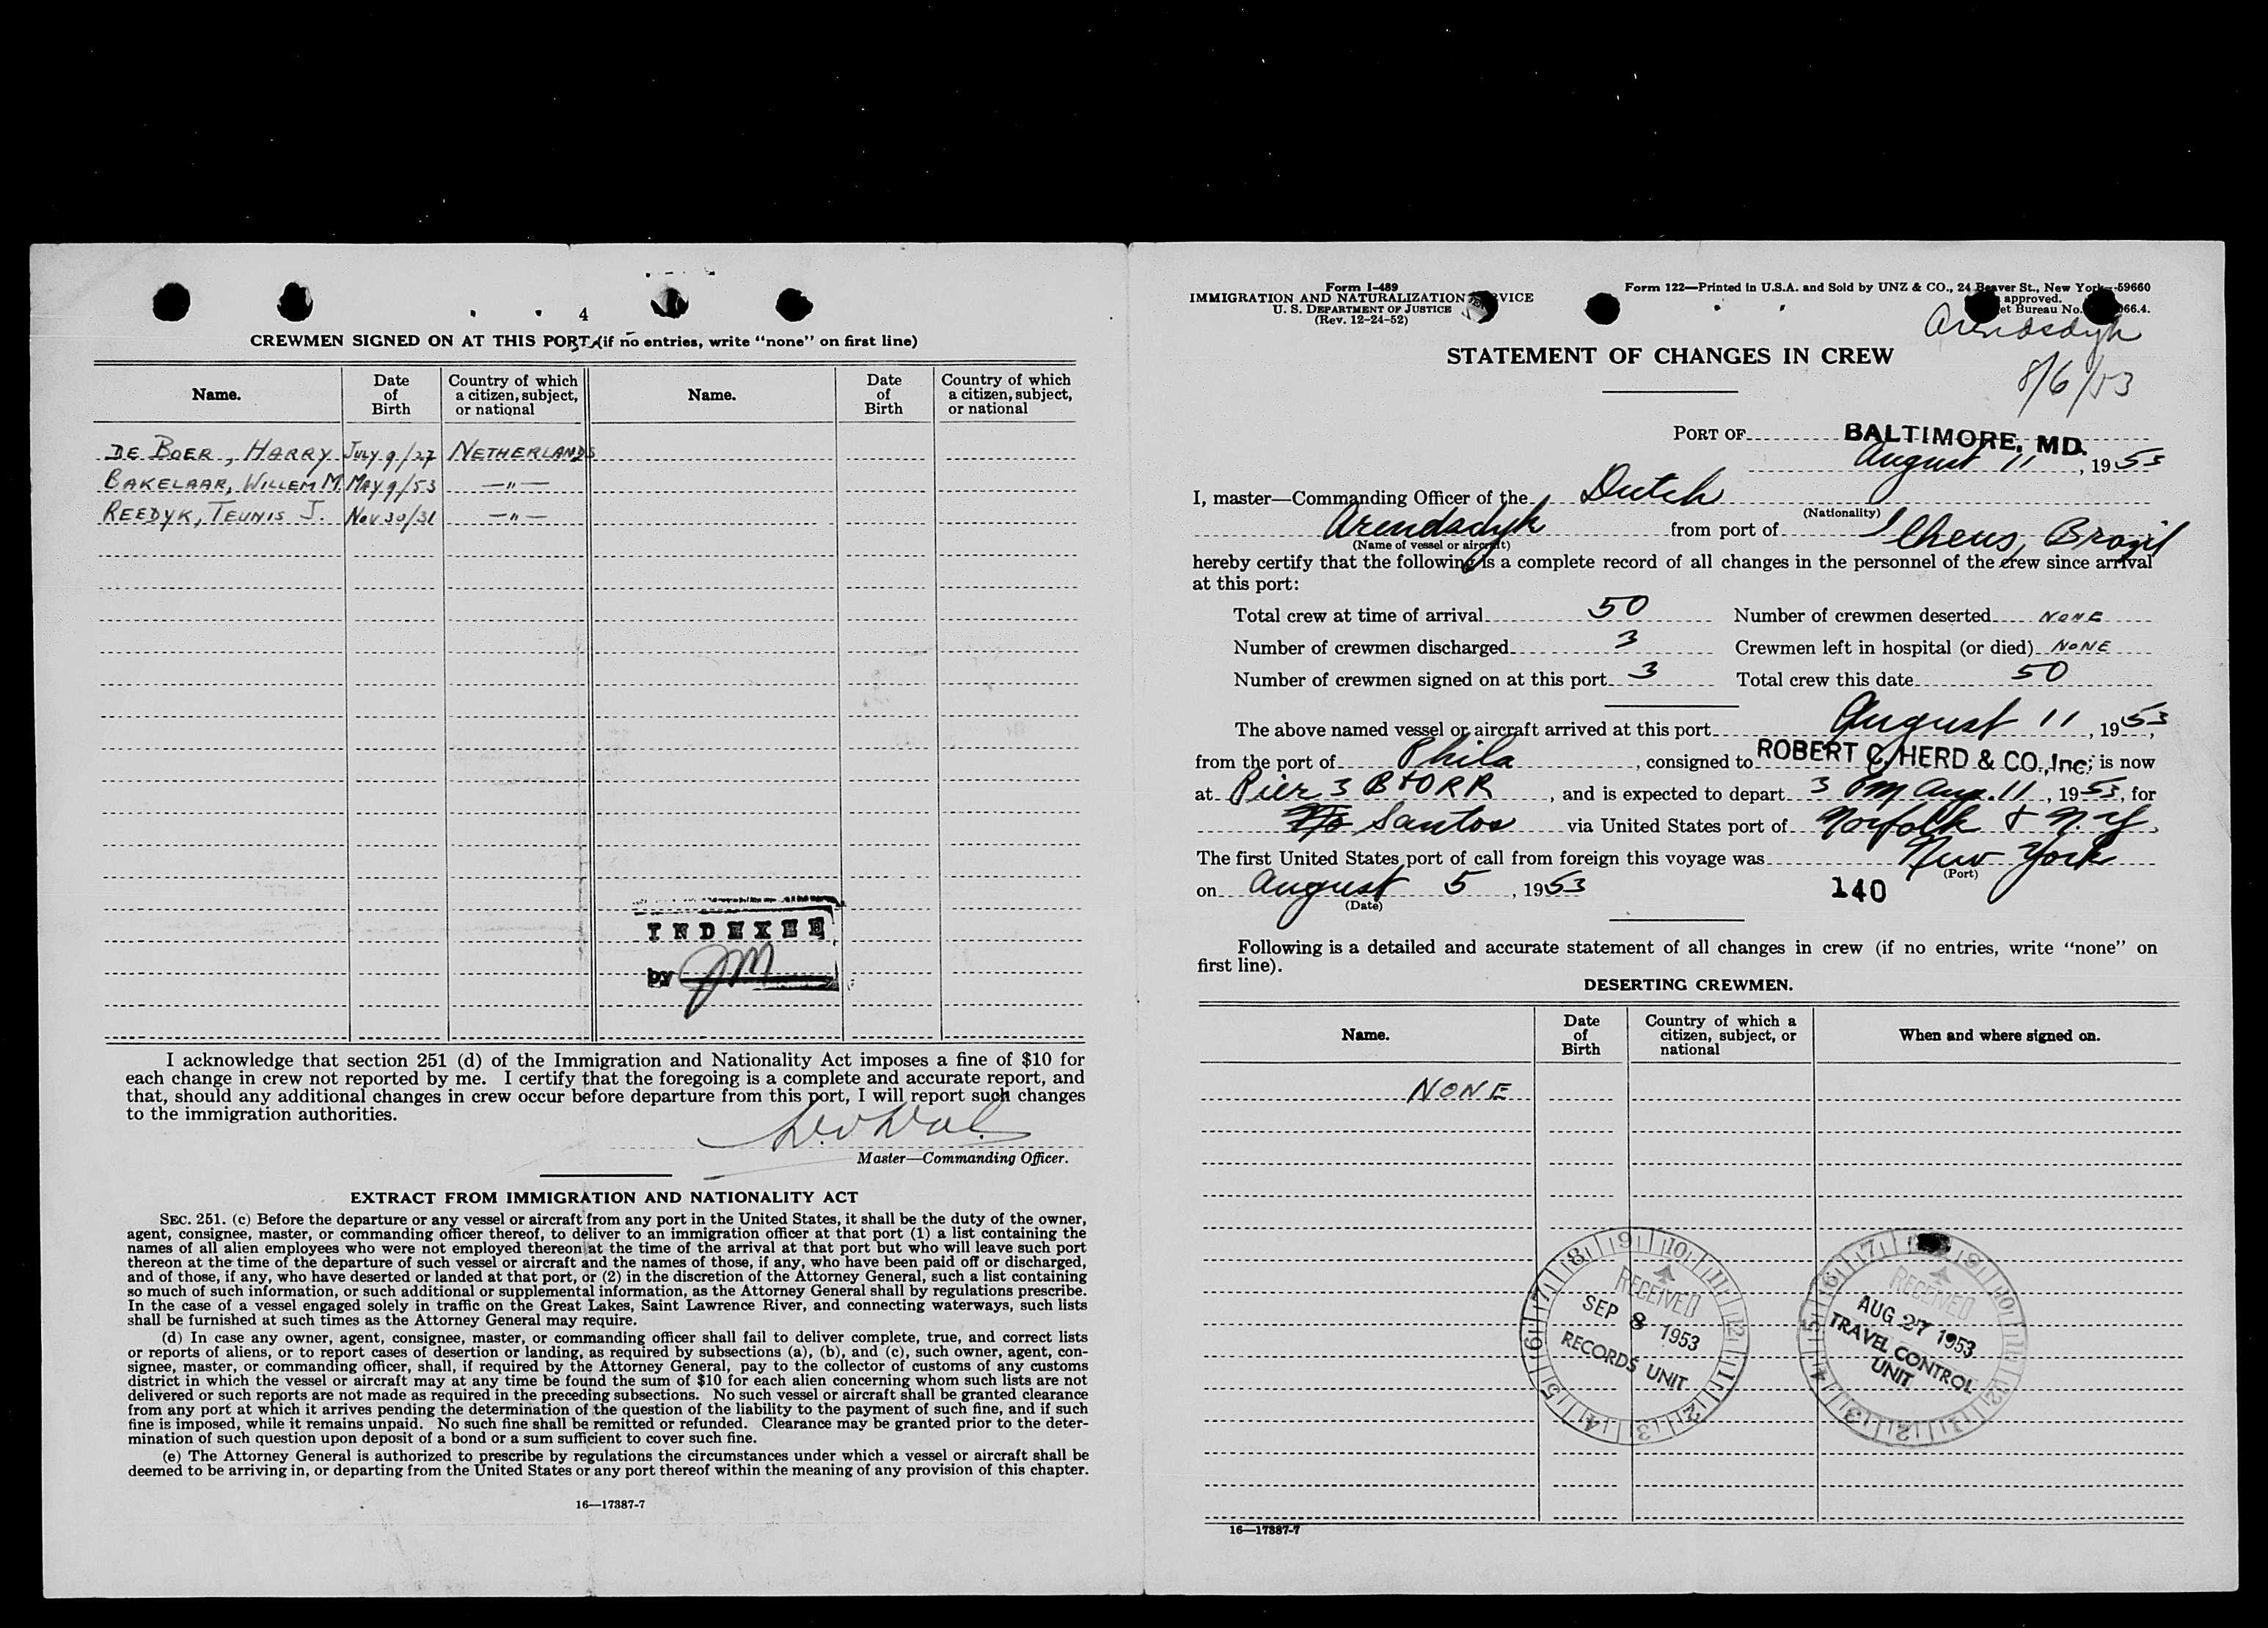 4
CREWMEN SIGNED ON AT THIS PORT (if no entries, write "none" on first line)
Name.
Date of Birth
Country of which a citizen, subject, or national
Name.
Date of Birth
Country of which a citizen, subject, or national
DE BOER, HARRY JULY 9/27 NETHERLANDS
BAKELAAR, WILLEM M. MAY 9/53 —"—
REEDYK, TEUNIS J. NOV 30/31 —"—
INDEXED
by JM
I acknowledge that section 251 (d) of the Immigration and Nationality Act imposes a fine of $10 for
each change in crew not reported by me. I certify that the foregoing is a complete and accurate report, and
that, should any additional changes in crew occur before departure from this port, I will report such changes
to the immigration authorities.
Master—Commanding Officer.
EXTRACT FROM IMMIGRATION AND NATIONALITY ACT
SEC. 251. (c) Before the departure or any vessel or aircraft from any port in the United States, it shall be the duty of the owner,
agent, consignee, master, or commanding officer thereof, to deliver to an immigration officer at that port (1) a list containing the
names of all alien employees who were not employed thereon at the time of the arrival at that port but who will leave such port
thereon at the time of the departure of such vessel or aircraft and the names of those, if any, who have been paid off or discharged,
and of those, if any, who have deserted or landed at that port, or (2) in the discretion of the Attorney General, such a list containing
so much of such information, or such additional or supplemental information, as the Attorney General shall by regulations prescribe.
In the case of a vessel engaged solely in traffic on the Great Lakes, Saint Lawrence River, and connecting waterways, such lists
shall be furnished at such times as the Attorney General may require.
(d) In case any owner, agent, consignee, master, or commanding officer shall fail to deliver complete, true, and correct lists
or reports of aliens, or to report cases of desertion or landing, as required by subsections (a), (b), and (c), such owner, agent, con-
signee, master, or commanding officer, shall, if required by the Attorney General, pay to the collector of customs of any customs
district in which the vessel or aircraft may at any time be found the sum of $10 for each alien concerning whom such lists are not
delivered or such reports are not made as required in the preceding subsections. No such vessel or aircraft shall be granted clearance
from any port at which it arrives pending the determination of the question of the liability to the payment of such fine, and if such
fine is imposed, while it remains unpaid. No such fine shall be remitted or refunded. Clearance may be granted prior to the deter-
mination of such question upon deposit of a bond or a sum sufficient to cover such fine.
(e) The Attorney General is authorized to prescribe by regulations the circumstances under which a vessel or aircraft shall be
deemed to be arriving in, or departing from the United States or any port thereof within the meaning of any provision of this chapter.
16—17387-7
Form I-489
IMMIGRATION AND NATURALIZATION SERVICE
U. S. DEPARTMENT OF JUSTICE
(Rev. 12-24-52)
Form 122—Printed in U.S.A. and Sold by UNZ & CO., 24 Beaver St., New York—59660
approved.
et Bureau No. 066.4.
Arendsdyk
8/6/53
STATEMENT OF CHANGES IN CREW
PORT OF BALTIMORE, MD.
August 11, 1953
I, master—Commanding Officer of the Dutch
(Nationality)
Arendsdyk from port of Ilheus, Brazil
(Name of vessel or aircraft)
hereby certify that the following is a complete record of all changes in the personnel of the crew since arrival
at this port:
Total crew at time of arrival 50 Number of crewmen deserted NONE
Number of crewmen discharged 3 Crewmen left in hospital (or died) NONE
Number of crewmen signed on at this port 3 Total crew this date 50
The above named vessel or aircraft arrived at this port August 11, 1953,
from the port of Phila, consigned to ROBERT C. HERD & CO., Inc; is now
at Pier 3 B+ORR, and is expected to depart 3 PM Aug. 11, 1953, for
Santos via United States port of Norfolk & N.Y.
The first United States port of call from foreign this voyage was New York
(Port)
on August 5, 1953 140
(Date)
Following is a detailed and accurate statement of all changes in crew (if no entries, write "none" on
first line).
DESERTING CREWMEN.
Name.
Date of Birth
Country of which a citizen, subject, or national
When and where signed on.
NONE
RECEIVED
SEP 8 1953
RECORDS UNIT
RECEIVED
AUG 27 1953
TRAVEL CONTROL
UNIT
16—17387-7